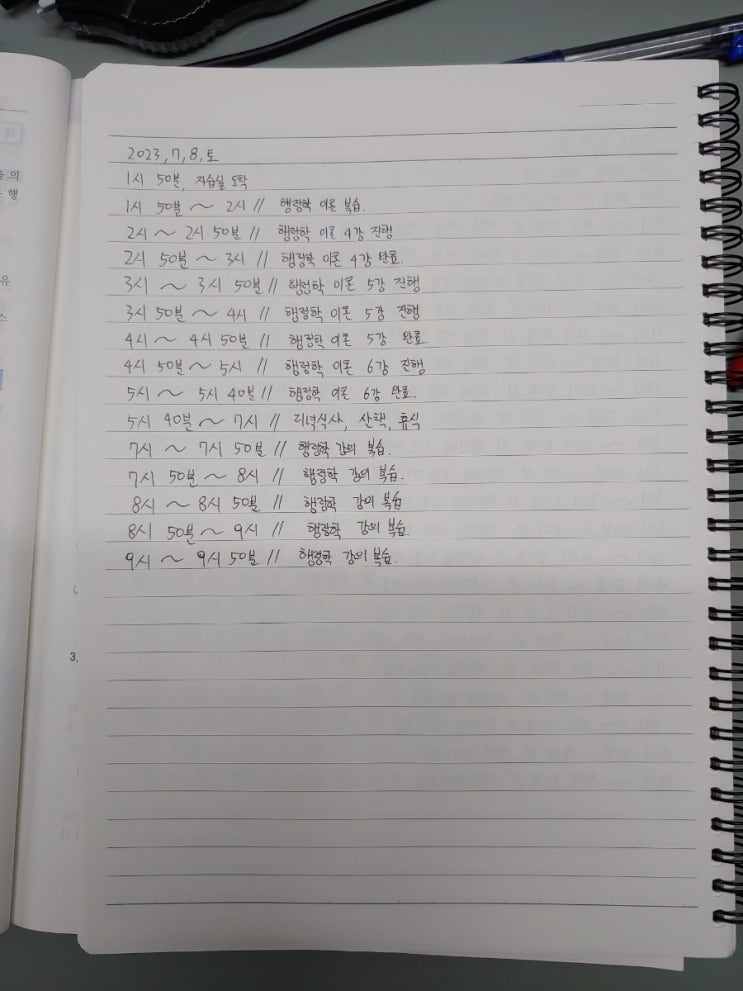 2023, 7, 8, 토
1시 50분, 자습실 도착
1시 50분 ~ 2시 // 행정학 이론 복습.
2시 ~ 2시 50분 // 행정학 이론 4강 진행
2시 50분 ~ 3시 // 행정학 이론 4강 완료.
3시 ~ 3시 50분 // 행정학 이론 5강 진행
3시 50분 ~ 4시 // 행정학 이론 5강 진행
4시 ~ 4시 50분 // 행정학 이론 5강 완료.
4시 50분 ~ 5시 // 행정학 이론 6강 진행
5시 ~ 5시 40분 // 행정학 이론 6강 완료.
5시 40분 ~ 7시 // 저녁식사, 산책, 휴식
7시 ~ 7시 50분 // 행정학 강의 복습.
7시 50분 ~ 8시 // 행정학 강의 복습.
8시 ~ 8시 50분 // 행정학 강의 복습
8시 50분 ~ 9시 // 행정학 강의 복습.
9시 ~ 9시 50분 // 행정학 강의 복습.
3.